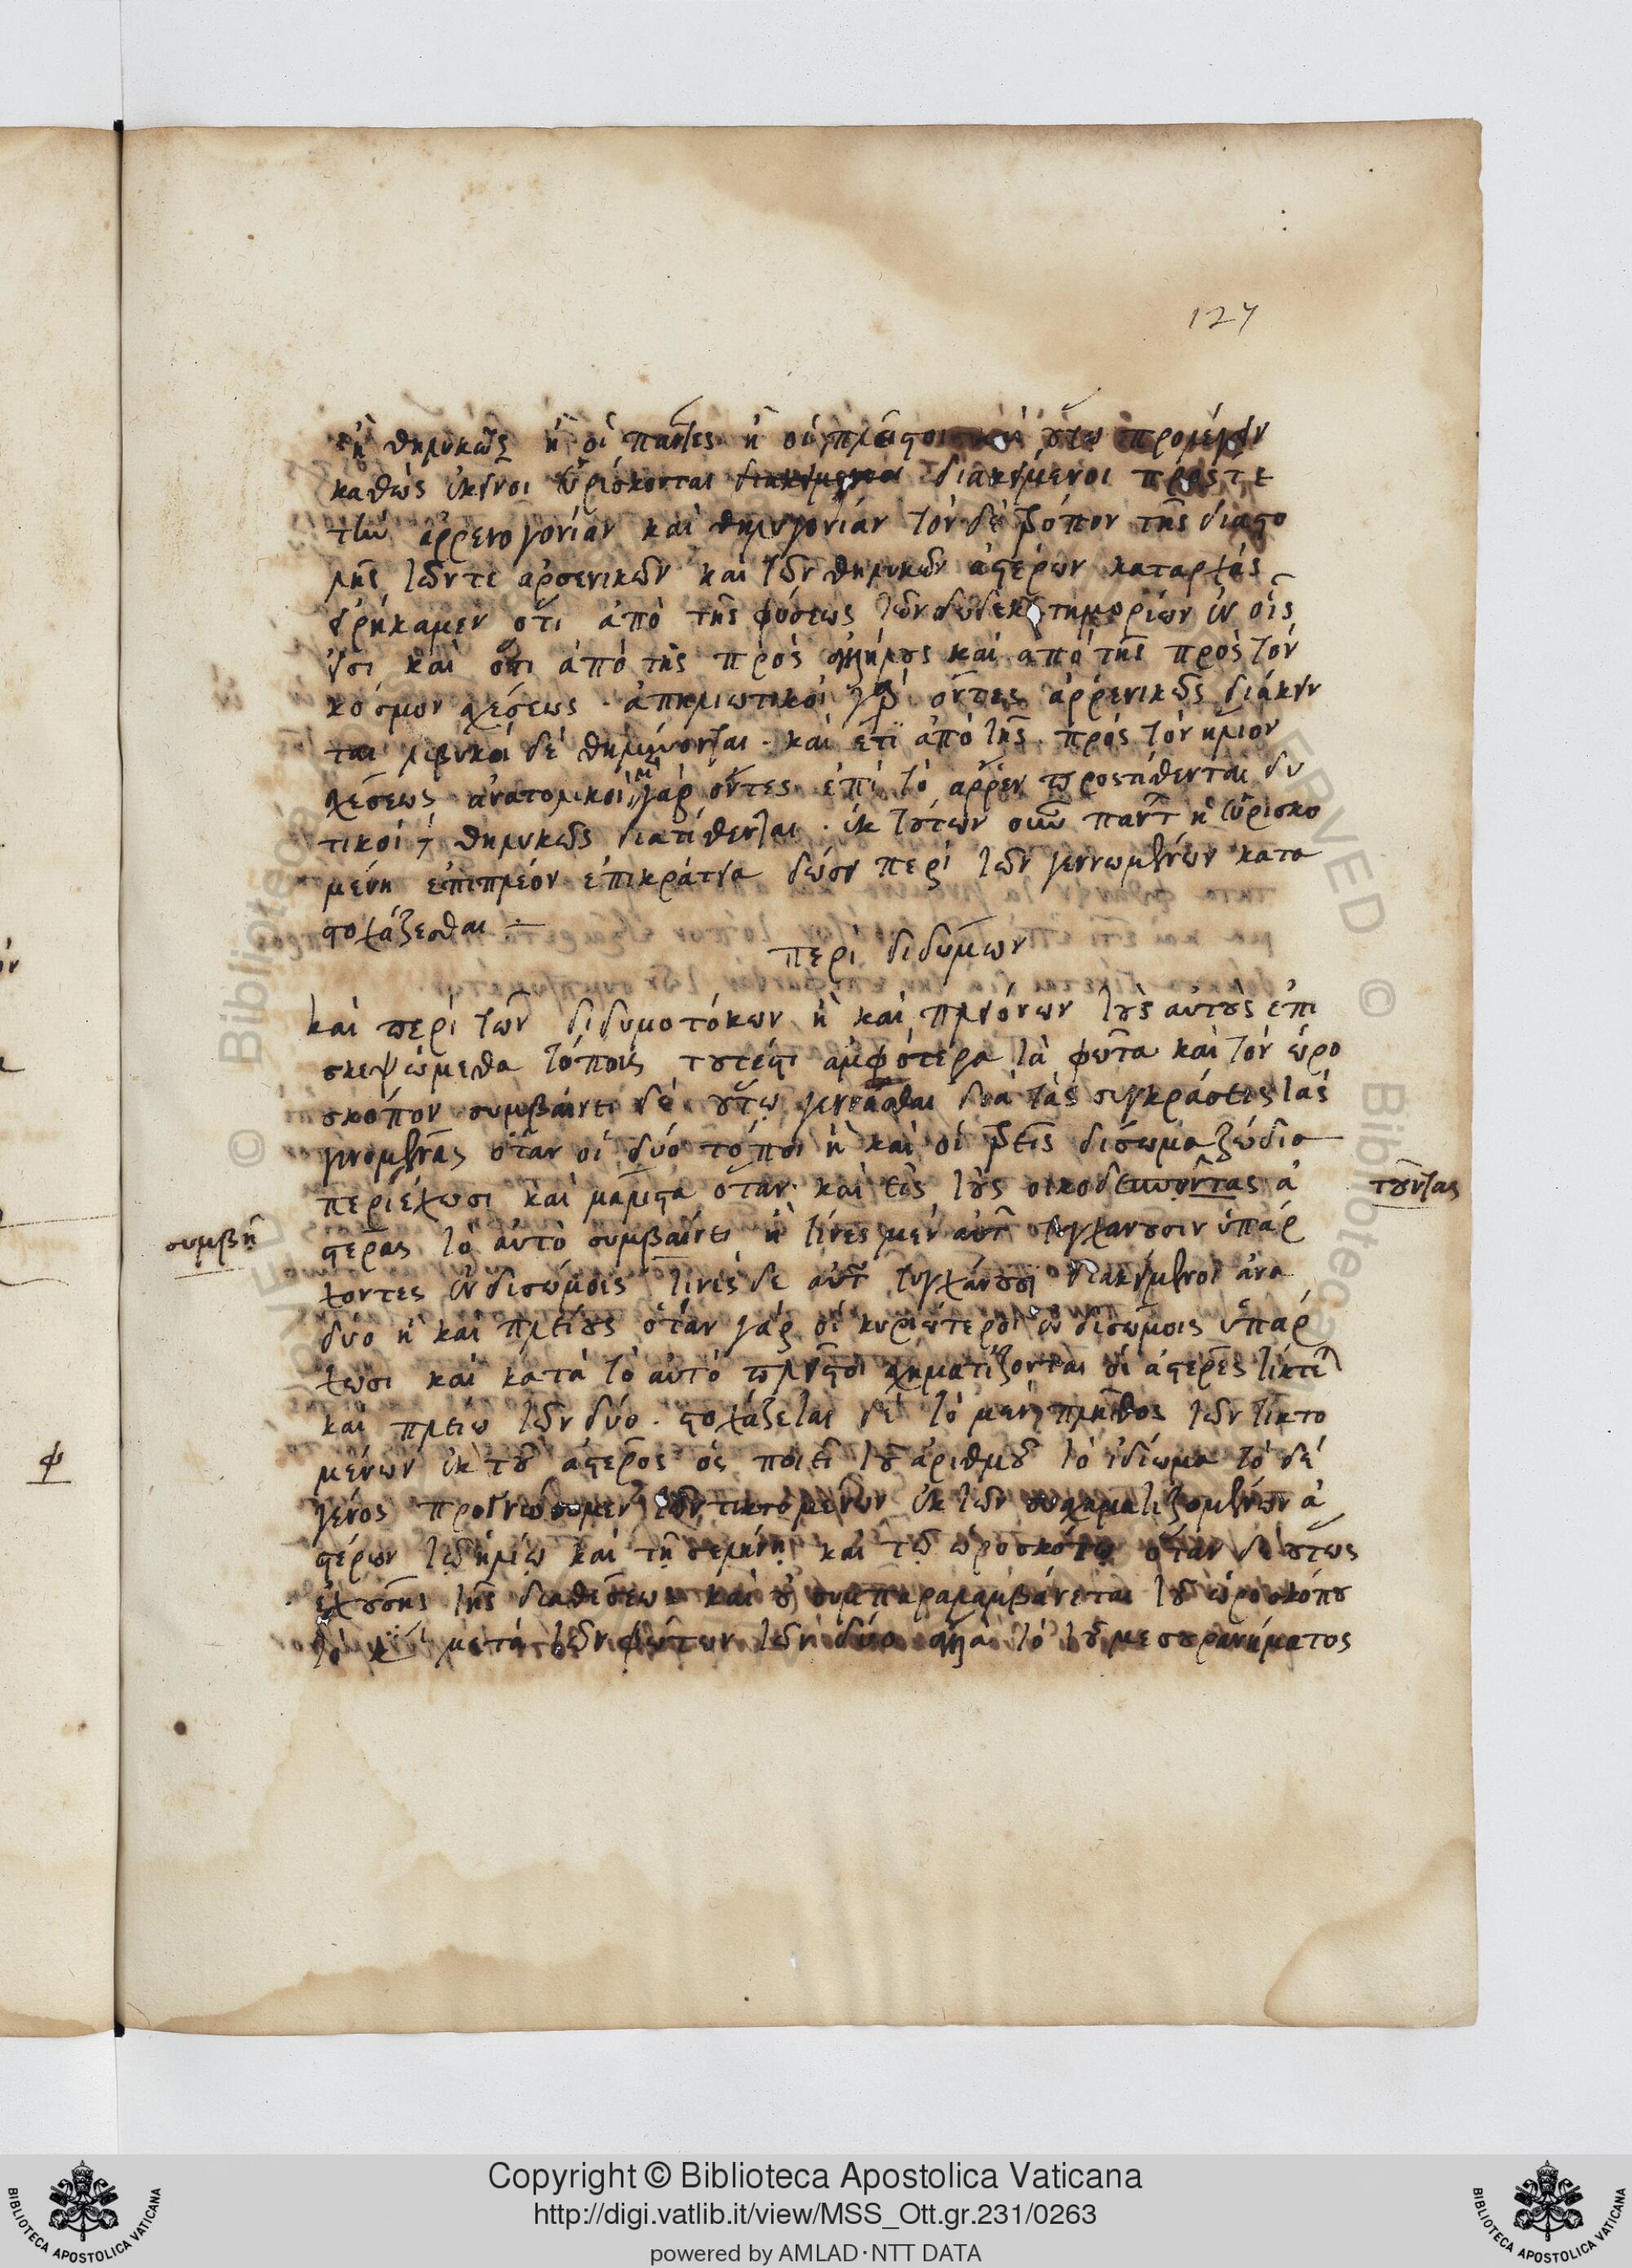 127
ἢ θηλυκῶς ἢ οἱ πάντες ἢ οἱ πλεῖστοι καὶ οὕτω προλέγειν
καθὼς ἐκεῖνοι εὑρίσκονται διακείμενοι διακείμενοι πρός τε
τὴν ἀρρενογονίαν καὶ θηλυγονίαν τὸν δὲ τρόπον τῆς διαστο
λῆς τῶν τε ἀρσενικῶν καὶ τῶν θηλυκῶν ἀστέρων καταρχὰς
εἰρήκαμεν ὅτι ἀπὸ τῆς φύσεως τῶν δωδεκατημορίων ἐν οἷς
εἰσι καὶ ὅτι ἀπὸ τῆς πρὸς ἀλλήλους καὶ ἀπὸ τῆς πρὸς τὸν
κόσμον σχέσεως · ἀπηλιωτικοὶ γὰρ ὄντες ἀρρενικῶς διάκειν
ται λιβυκοὶ δὲ θηλύνονται · καὶ ἔτι ἀπὸ τῆς πρὸς τὸν ἥλιον
σχέσεως ἀνατολικοὶ μὲν γὰρ ὄντες ἐπὶ τὸ ἄρρεν προστίθενται δυ
τικοὶ δὲ θηλυκῶς διατίθενται · ἐκ τούτων οὖν παντ ἡ εὑρισκο
μένη ἐπιπλέον ἐπικράτεια δώσει περὶ τῶν γεννωμένων κατα
στοχάζεσθαι
περὶ διδύμων
καὶ περὶ τῶν διδυμοτόκων ἢ καὶ πλειόνων τοὺς αὐτοὺς ἐπι
σκεψώμεθα τόπους τουτέστι ἀμφότερα τὰ φῶτα καὶ τὸν ὡρο
σκόπον συμβαίνει δὲ οὕτω γενέσθαι διὰ τὰς συγκράσεις τὰς
γινομένας ὅταν οἱ δύο τόποι ἢ καὶ οἱ τρεῖς δίσωμα ζώδια
περιέχωσι καὶ μάλιστα ὅταν καὶ εἰς τοὺς οἰκοδεσποτοῦντας ἀ
τοῦντας
συμβῇ
στέρας τὸ αὐτὸ συμβαίνει ἢ τινὲς μὲν αὐτ τυγχάνουσιν ὑπάρ
χοντες ἐν δισώμοις τινὲς δὲ αὐτ τυγχάνουσι διακείμενοι ἀνα
δύο ἢ καὶ πλείους ὅταν γὰρ οἱ κυριώτεροι ἐν δισώμοις ὑπάρ
χωσι καὶ κατὰ τὸ αὐτὸ πλεῖστοι σχηματίζονται οἱ ἀστέρες τίκτε
καὶ πλείω τῶν δύο · στοχάζεται δὲ τὸ μὲν πλῆθος τῶν τικτο
μένων ἐκ τοῦ ἀστέρος ὃς ποιεῖ τοῦ ἀριθμοῦ τὸ ἰδίωμα τὸ δὲ
γένος προγνώσομεν τῶν τικτομένων ἐκ τῶν συσχηματιζομένων ἀ
στέρων τῷ ἡλίῳ καὶ τῇ σελήνῃ καὶ τῷ ὡροσκόπῳ ὅταν δὲ οὕτως
ἐχούσης τῆς διαθέσεως καὶ οὐ συμπαραλαμβάνεται τοῦ ὡροσκόπου
τὸ μετὰ τῶν φώτων τῶν δύο ἀλλὰ τὸ τοῦ μεσουρανήματος
φ
Copyright © Biblioteca Apostolica Vaticana
http://digi.vatlib.it/view/MSS_Ott.gr.231/0263
powered by AMLAD·NTT DATA